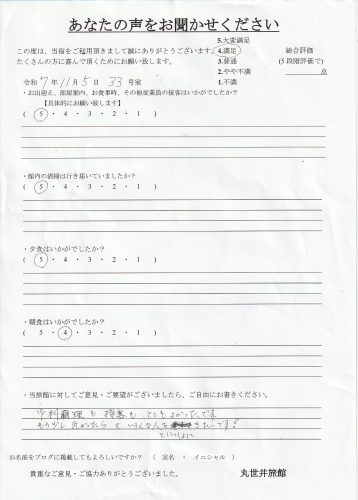 あなたの声をお聞かせください
この度は、当宿をご利用頂きまして誠にありがとうございます。
たくさんの方に喜んで頂くためにお願い致します。
5.大変満足
4.満足
3.普通
2.やや不満
1.不満
総合評価
(5段階評価で)
点
令和 7年 11月 5日 33号室
・お出迎え、部屋案内、お食事時、その他従業員の接客はいかがでしたか?
【具体的にお願い致します】
( 5 ・ 4 ・ 3 ・ 2 ・ 1 )
・館内の清掃は行き届いていましたか?
( 5 ・ 4 ・ 3 ・ 2 ・ 1 )
・夕食はいかがでしたか?
( 5 ・ 4 ・ 3 ・ 2 ・ 1 )
・朝食はいかがでしたか?
( 5 ・ 4 ・ 3 ・ 2 ・ 1 )
・当旅館に対してご意見・ご要望がございましたら、ご自由にお書きください。
料理も 接客も とてもよかったです
いろんな
といっしょに
お名前をブログに掲載してもよろしいですか? ( 実名 ・ イニシャル )
貴重なご意見・ご協力ありがとうございました。
丸世井旅館